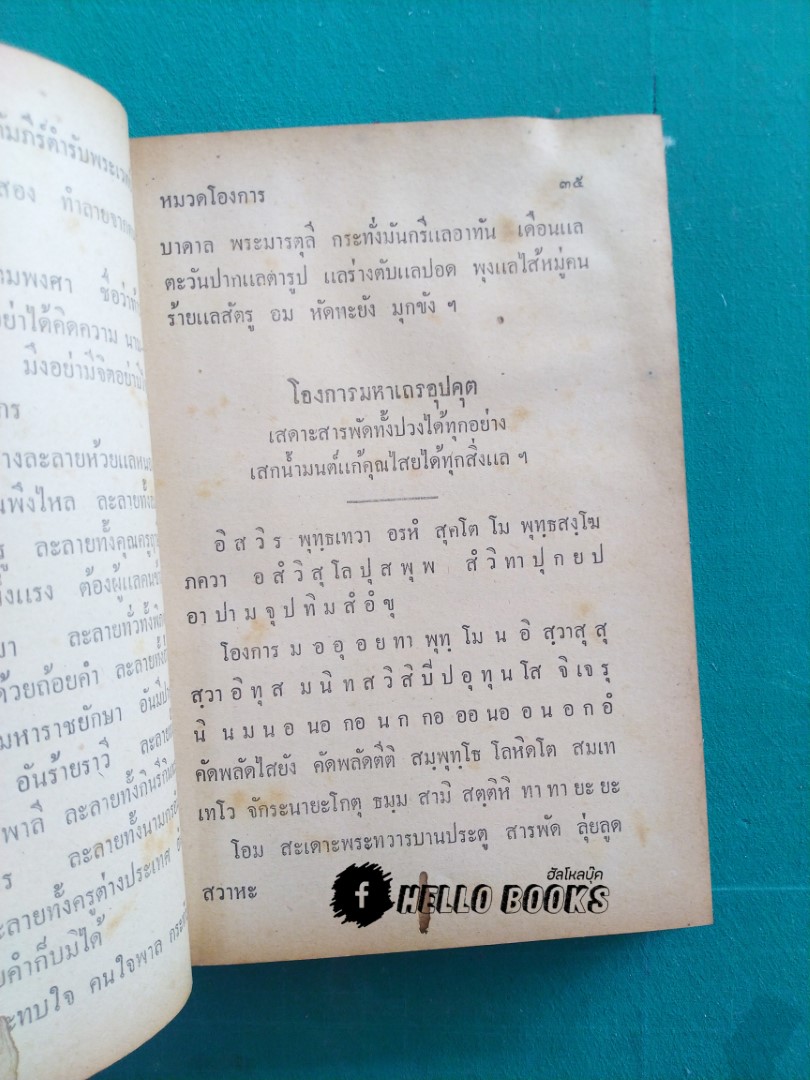 ทำลาย
สอง
ชื่อว่า
มพงศา
อย่าได้คิดความ
มึงอย่ามีจิตอย่า
กร
างละลายห้วยแลหนอง
นพึงไหล ละลายทั้ง
รู ละลายทั้งคุณครู
ต้องผู้แลคน
ละลายทั่วทั้งพิภพ
ด้วยถ้อยคำ ละลายทั้ง
มหาราชยักษา
อันร้ายราวี
พาลี ละลายทั้งกินรี
ร ละลายทั้งนาม
ะลายทั้งครูต่างประเทศ
ยคำก็บมิได้
ะทบใจ คนใจพาล
หมวดโองการ ๓๕
บาดาล พระมารตุลี กระทั่งมันกรีแลอาทัน เดือนแล
ตะวันปากแลตารูป แลร่างตับแลปอด พุงแลไส้หมู่คน
ร้ายแลสัตรู อม หัดทะยัง มุกขัง ฯ
โองการมหาเถรอุปคุต
เสดาะสารพัดทั้งปวงได้ทุกอย่าง
เสกน้ำมนต์แก้คุณไสยได้ทุกสิ่งแล ฯ
อิ ส วิ ร พุทฺธเทวา อรหํ สุคโต โม พุทฺธสงฺโฆ
ภควา อ สํ วิ สุ โล ปุ ส พุ พ สํ วิ ทา ปุ ก ย ป
อา ปา ม จุ ป ทิ ม สํ อํ ขุ
โองการ ม อ อุ อ ย ทา พุทฺ โม น อิ สฺวา สุ สุ
สฺวา อิ ทุ ส ม นิ ท ส วิ สิ ปี ป อุ ทุ น โส จิ เจ รุ
นิ น ม น อ นอ กอ น ก กอ ออ นอ อ น อ ก อํ
คัดพลัดไสยัง คัดพลัดตีติ สมฺพุทฺโธ โลหิตโต สมเท
เทโว จักระนายะโกตุ ธมฺม สามิ สตฺติหิ ทา ทา ยะ ยะ
โอม สะเดาะพระทวารบานประตู สารพัด ลุ่ยลูด
สวาหะ
f
ฮัลโหลบุ๊ค
HELLO BOOKS